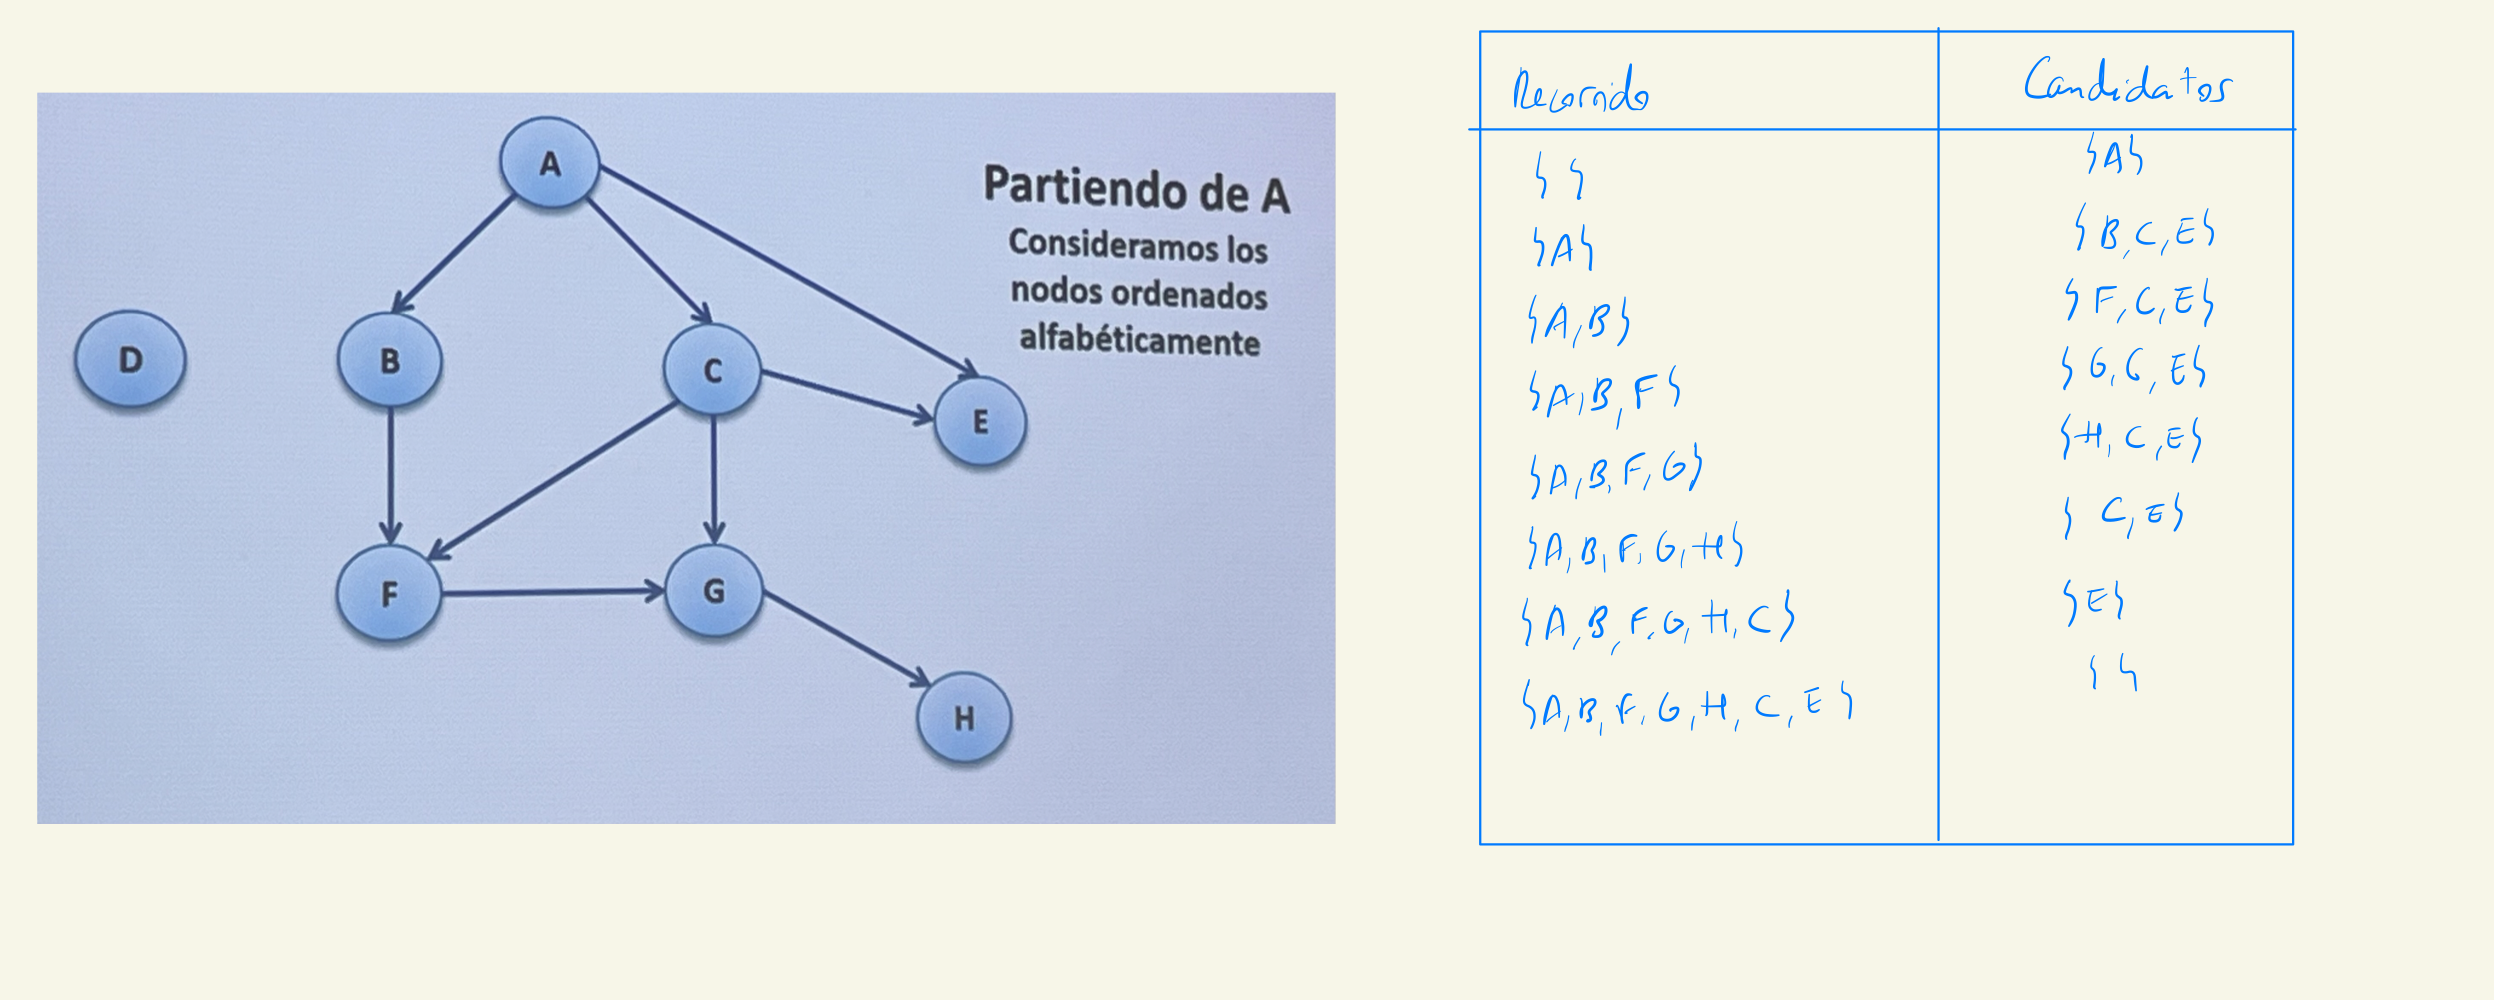 A
Partiendo de A
Consideramos los
nodos ordenados
alfabéticamente
D
B
C
E
F
G
H
Recorrido Candidatos
{ } {A}
{A} {B,C,E}
{A,B} {F,C,E}
{A,B,F} {G,C,E}
{A,B,F,G} {H,C,E}
{A,B,F,G,H} {C,E}
{A,B,F,G,H,C} {E}
{A,B,F,G,H,C,E} { }